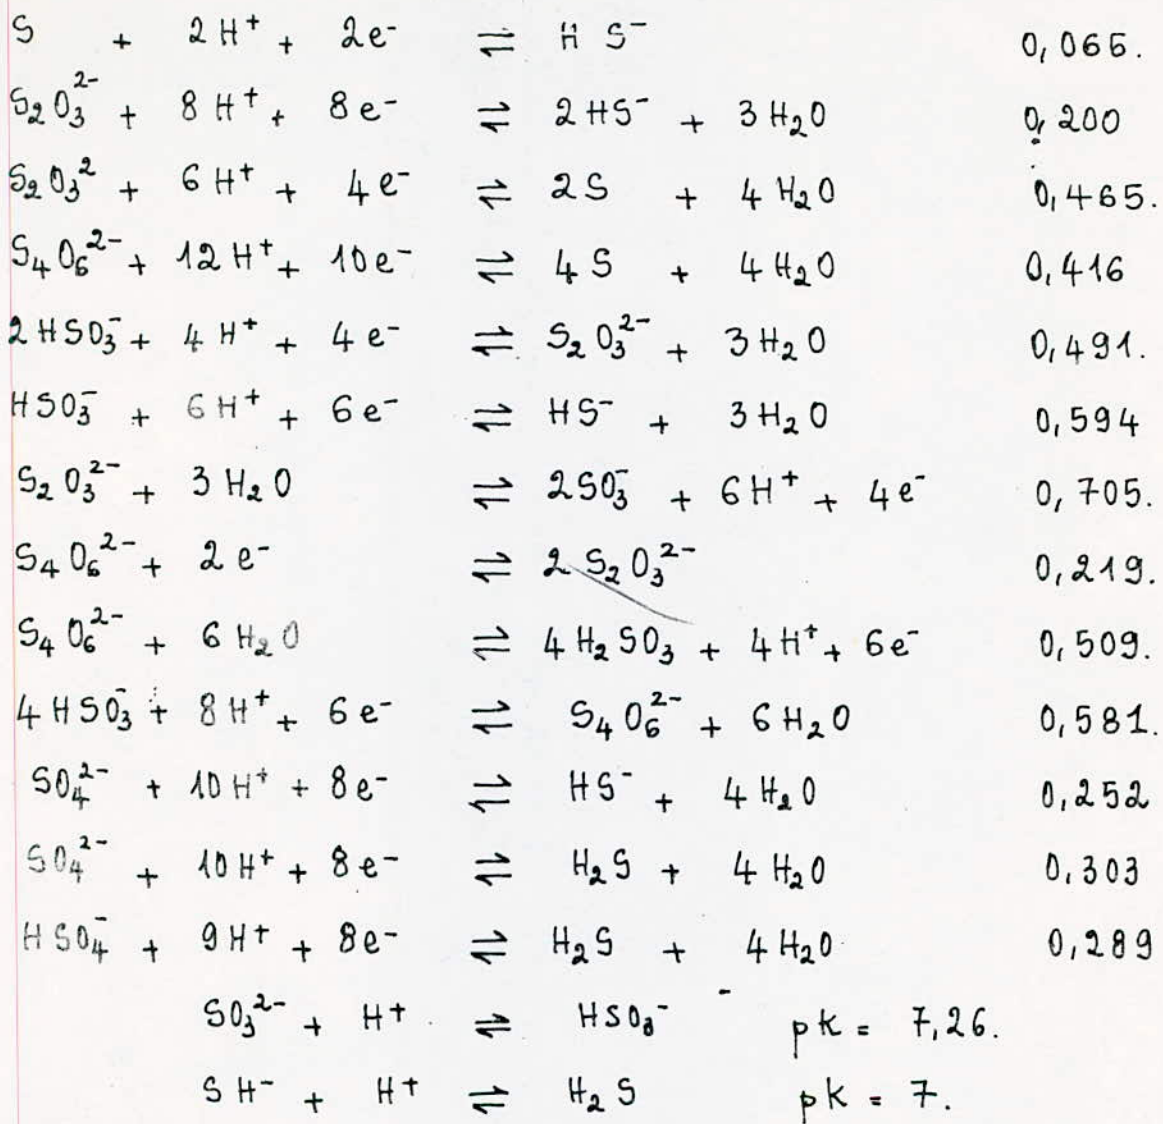 S + 2H⁺ + 2e⁻ ⇌ HS⁻ 0,065.
S₂O₃²⁻ + 8H⁺ + 8e⁻ ⇌ 2HS⁻ + 3H₂O 0,200
S₂O₃² + 6H⁺ + 4e⁻ ⇌ 2S + 4H₂O 0,465.
S₄O₆²⁻ + 12H⁺ + 10e⁻ ⇌ 4S + 4H₂O 0,416
2HSO₃⁻ + 4H⁺ + 4e⁻ ⇌ S₂O₃²⁻ + 3H₂O 0,491.
HSO₃⁻ + 6H⁺ + 6e⁻ ⇌ HS⁻ + 3H₂O 0,594
S₂O₃²⁻ + 3H₂O ⇌ 2SO₃⁻ + 6H⁺ + 4e⁻ 0,705.
S₄O₆²⁻ + 2e⁻ ⇌ 2S₂O₃²⁻ 0,219.
S₄O₆²⁻ + 6H₂O ⇌ 4H₂SO₃ + 4H⁺ + 6e⁻ 0,509.
4HSO₃⁻ + 8H⁺ + 6e⁻ ⇌ S₄O₆²⁻ + 6H₂O 0,581.
SO₄²⁻ + 10H⁺ + 8e⁻ ⇌ HS⁻ + 4H₂O 0,252
SO₄²⁻ + 10H⁺ + 8e⁻ ⇌ H₂S + 4H₂O 0,303
HSO₄⁻ + 9H⁺ + 8e⁻ ⇌ H₂S + 4H₂O 0,289
SO₃²⁻ + H⁺ ⇌ HSO₃⁻ pk = 7,26.
SH⁻ + H⁺ ⇌ H₂S pk = 7.